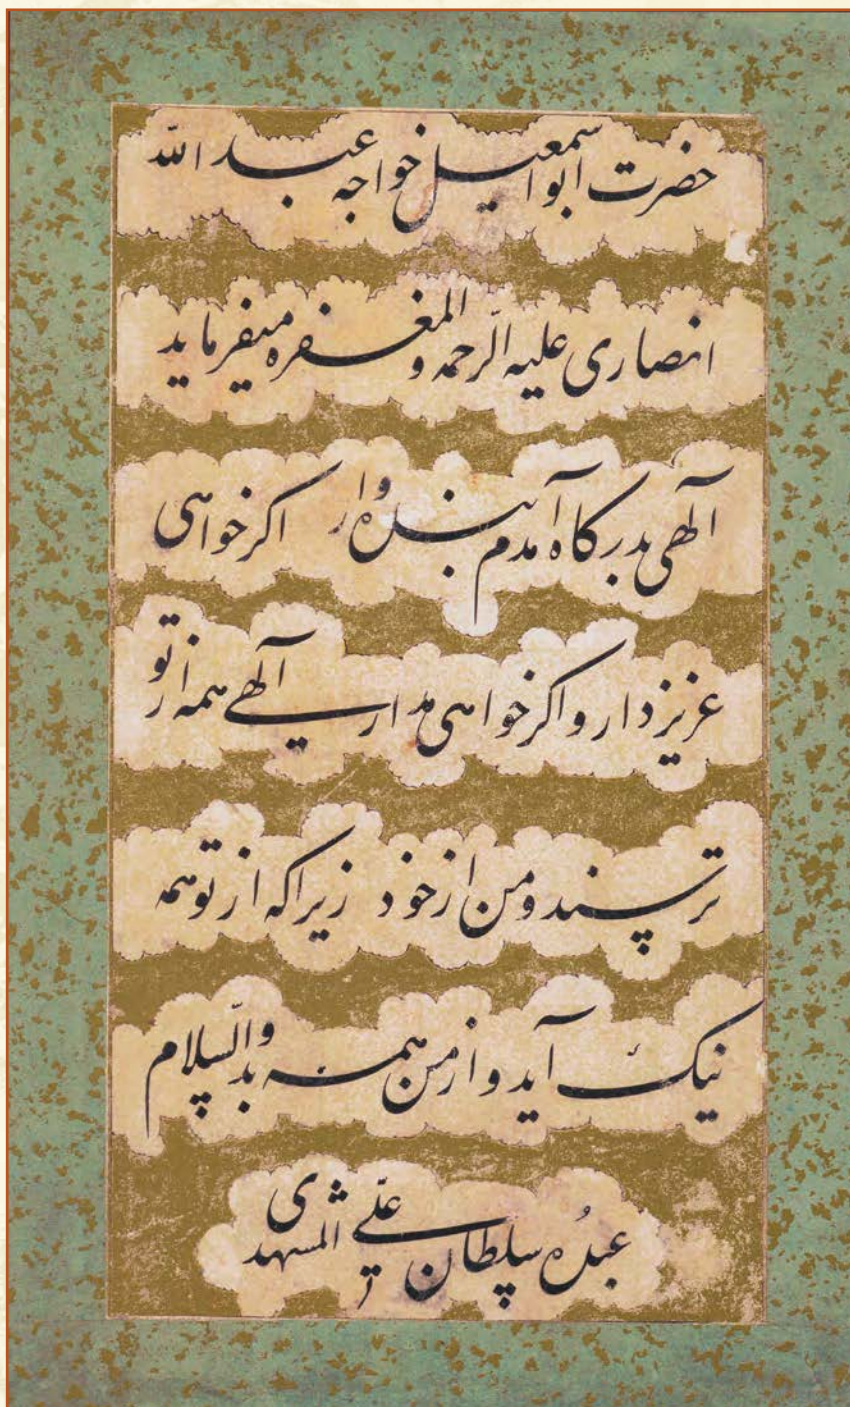 حضرت ابو اسمعیل خواجه عبد الله
انصاری علیه الرّحمه و المغفره میفرماید
الهی بدرکاه آمدم بنده وار اکر خواهی
عزیز دار و اکر خواهی مدار الهی همه از تو
ترسند و من از خود زیرا که از تو همه
نیک آید و از من همه بد و السّلام
عبدُه سلطان علی المشهدی